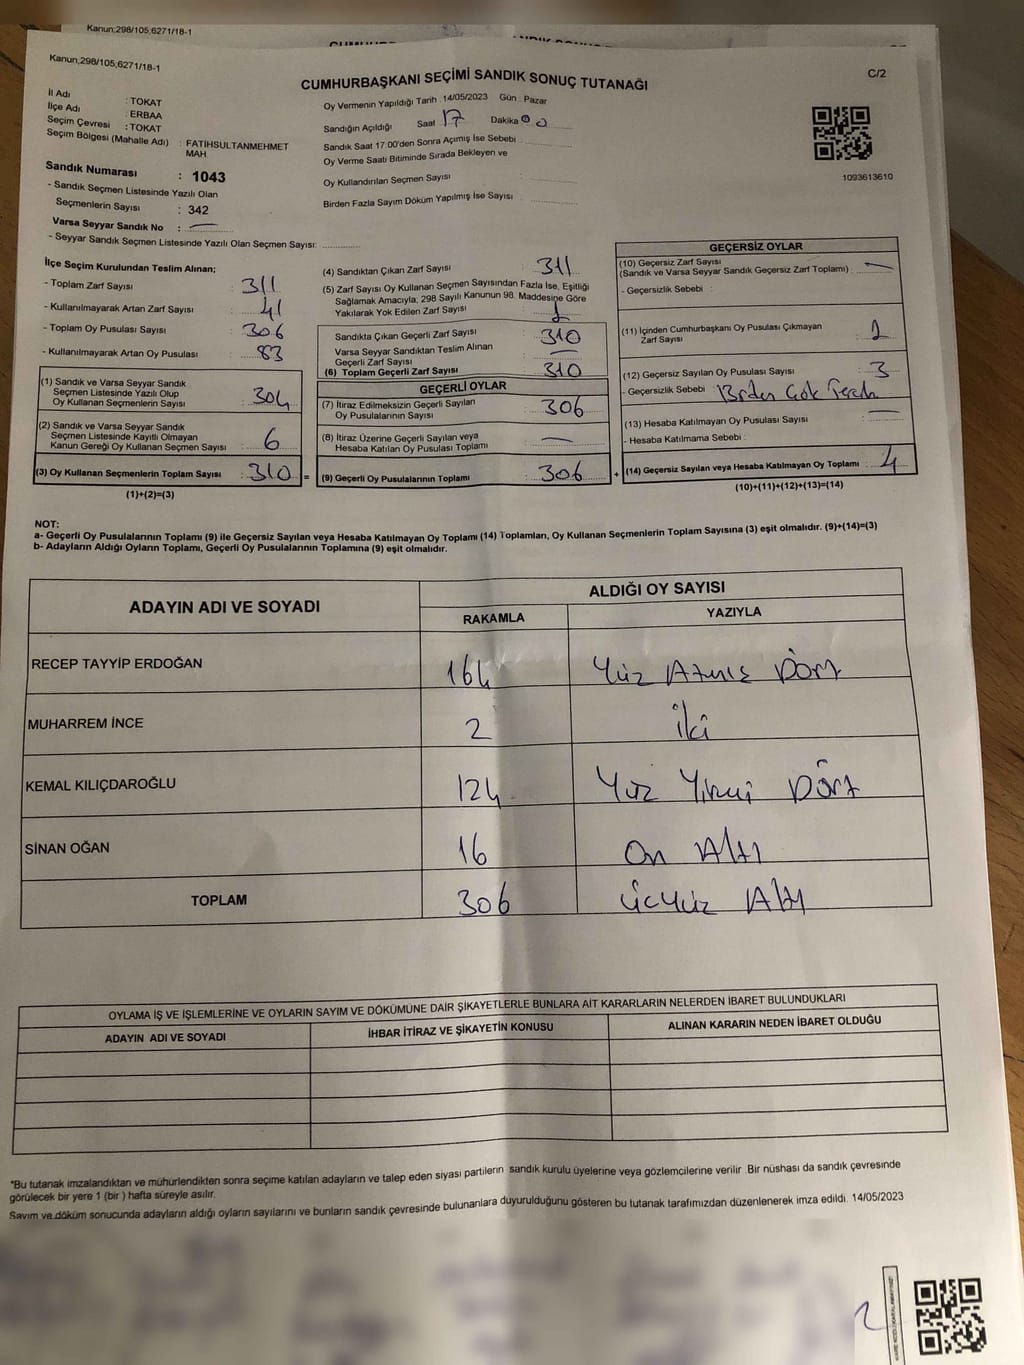 Kanun;298/105;6271/18-1
Kanun;298/105;6271/18-1
C/2
CUMHURBAŞKANI SEÇİMİ SANDIK SONUÇ TUTANAĞI
İl Adı : TOKAT
İlçe Adı : ERBAA
Seçim Çevresi : TOKAT
Seçim Bölgesi (Mahalle Adı) : FATİHSULTANMEHMET
MAH
Sandık Numarası : 1043
- Sandık Seçmen Listesinde Yazılı Olan
Seçmenlerin Sayısı : 342
Varsa Seyyar Sandık No : —
- Seyyar Sandık Seçmen Listesinde Yazılı Olan Seçmen Sayısı:
Oy Vermenin Yapıldığı Tarih : 14/05/2023 Gün : Pazar
Sandığın Açıldığı Saat 17 Dakika 00
Sandık Saat 17.00'den Sonra Açımış İse Sebebi :
Oy Verme Saati Bitiminde Sırada Bekleyen ve
Oy Kullandırılan Seçmen Sayısı :
Birden Fazla Sayım Döküm Yapılmış İse Sayısı :
1093613610
İlçe Seçim Kurulundan Teslim Alınan;
- Toplam Zarf Sayısı : 311
- Kullanılmayarak Artan Zarf Sayısı : 41
- Toplam Oy Pusulası Sayısı : 306
- Kullanılmayarak Artan Oy Pusulası : 83
(1) Sandık ve Varsa Seyyar Sandık
Seçmen Listesinde Yazılı Olup
Oy Kullanan Seçmenlerin Sayısı : 304
(2) Sandık ve Varsa Seyyar Sandık
Seçmen Listesinde Kayıtlı Olmayan
Kanun Gereği Oy Kullanan Seçmen Sayısı : 6
(3) Oy Kullanan Seçmenlerin Toplam Sayısı : 310 =
(1)+(2)=(3)
(4) Sandıktan Çıkan Zarf Sayısı : 311
(5) Zarf Sayısı Oy Kullanan Seçmen Sayısından Fazla İse, Eşitliği
Sağlamak Amacıyla; 298 Sayılı Kanunun 98. Maddesine Göre
Yakılarak Yok Edilen Zarf Sayısı : 1
Sandıkta Çıkan Geçerli Zarf Sayısı : 310
Varsa Seyyar Sandıktan Teslim Alınan
Geçerli Zarf Sayısı : —
(6) Toplam Geçerli Zarf Sayısı : 310
GEÇERLİ OYLAR
(7) İtiraz Edilmeksizin Geçerli Sayılan
Oy Pusulalarının Sayısı : 306
(8) İtiraz Üzerine Geçerli Sayılan veya
Hesaba Katılan Oy Pusulası Toplamı : —
(9) Geçerli Oy Pusulalarının Toplamı : 306 +
GEÇERSİZ OYLAR
(10) Geçersiz Zarf Sayısı
(Sandık ve Varsa Seyyar Sandık Geçersiz Zarf Toplamı) : —
- Geçersizlik Sebebi :
(11) İçinden Cumhurbaşkanı Oy Pusulası Çıkmayan
Zarf Sayısı : 1
(12) Geçersiz Sayılan Oy Pusulası Sayısı : 3
- Geçersizlik Sebebi : Birden Çok Tercih
(13) Hesaba Katılmayan Oy Pusulası Sayısı : —
- Hesaba Katılmama Sebebi :
(14) Geçersiz Sayılan veya Hesaba Katılmayan Oy Toplamı : 4
(10)+(11)+(12)+(13)=(14)
NOT:
a- Geçerli Oy Pusulalarının Toplamı (9) ile Geçersiz Sayılan veya Hesaba Katılmayan Oy Toplamı (14) Toplamları, Oy Kullanan Seçmenlerin Toplam Sayısına (3) eşit olmalıdır. (9)+(14)=(3)
b- Adayların Aldığı Oyların Toplamı, Geçerli Oy Pusulalarının Toplamına (9) eşit olmalıdır.
ADAYIN ADI VE SOYADI ALDIĞI OY SAYISI
RAKAMLA YAZIYLA
RECEP TAYYİP ERDOĞAN 164 Yüz Atmış Dört
MUHARREM İNCE 2 İki
KEMAL KILIÇDAROĞLU 124 Yüz Yirmi Dört
SİNAN OĞAN 16 On Altı
TOPLAM 306 Üçyüz Altı
OYLAMA İŞ VE İŞLEMLERİNE VE OYLARIN SAYIM VE DÖKÜMÜNE DAİR ŞİKAYETLERLE BUNLARA AİT KARARLARIN NELERDEN İBARET BULUNDUKLARI
ADAYIN ADI VE SOYADI İHBAR İTİRAZ VE ŞİKAYETİN KONUSU ALINAN KARARIN NEDEN İBARET OLDUĞU
"Bu tutanak imzalandıktan ve mühürlendikten sonra seçime katılan adayların ve talep eden siyasi partilerin sandık kurulu üyelerine veya gözlemcilerine verilir .Bir nüshası da sandık çevresinde
görülecek bir yere 1 (bir ) hafta süreyle asılır.
Sayım ve döküm sonucunda adayların aldığı oyların sayılarını ve bunların sandık çevresinde bulunanlara duyurulduğunu gösteren bu tutanak tarafımızdan düzenlenerek imza edildi. 14/05/2023